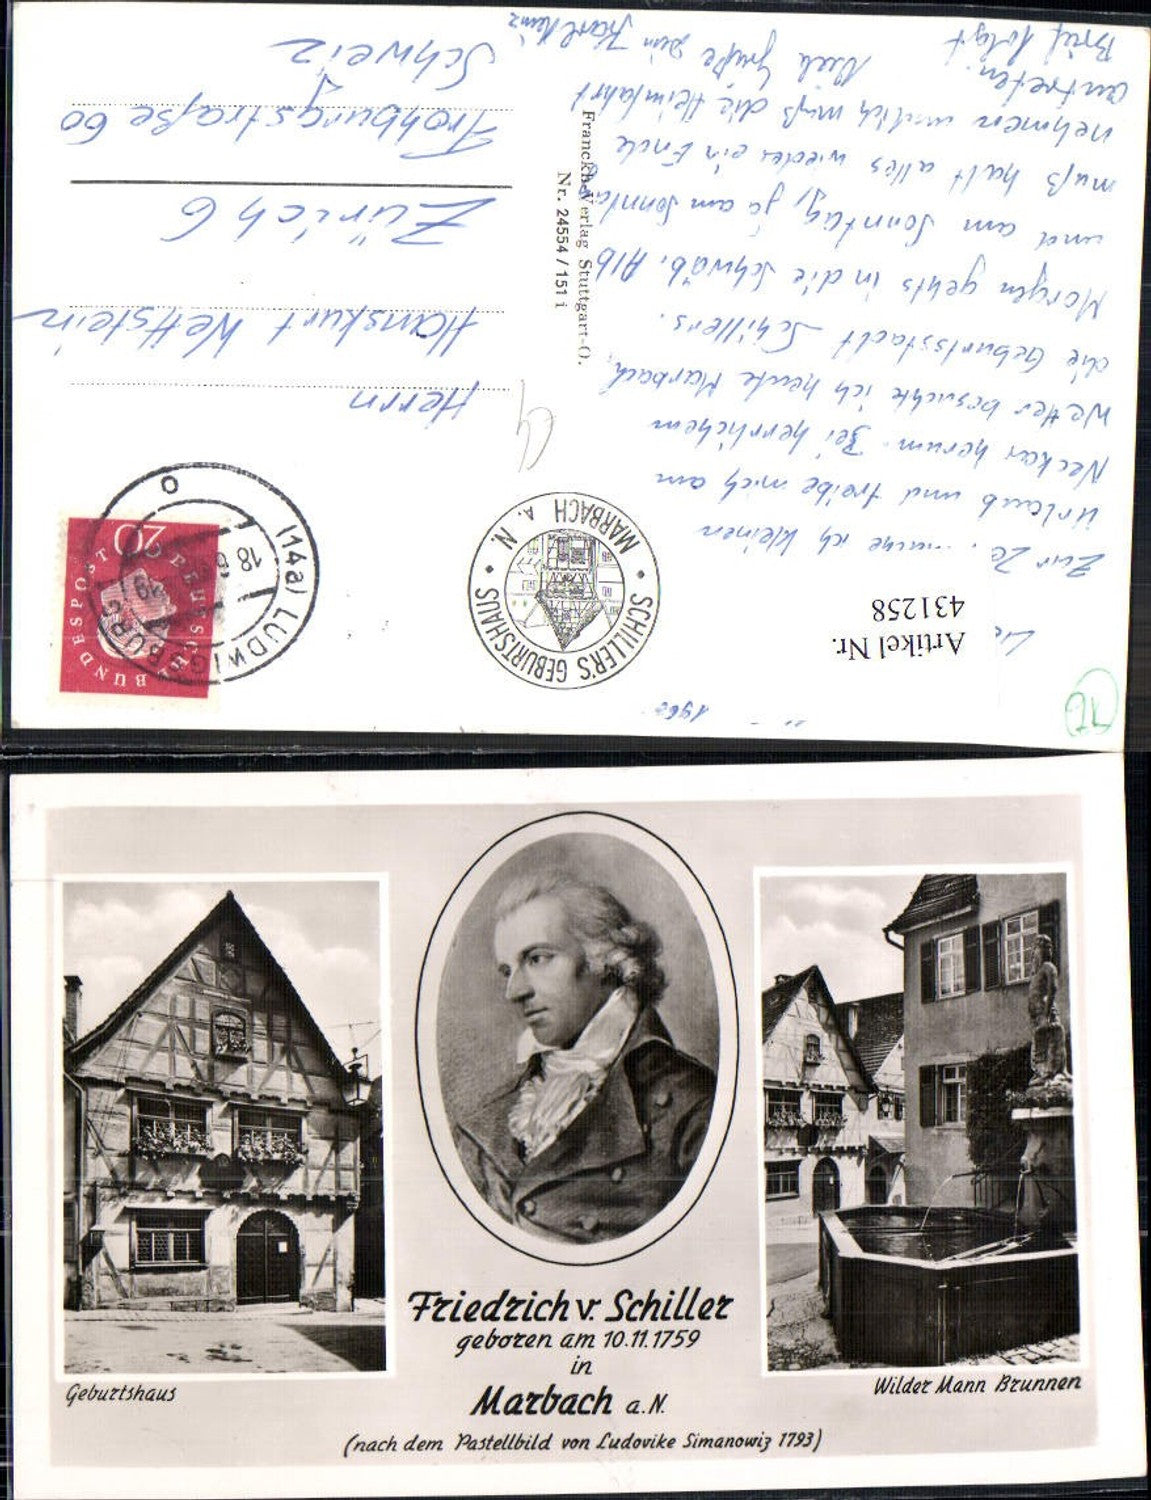 Zur Ze. ich kleinen
Urlaub und treibe mich am
Neckar herum. Bei herrlichem
Wetter besuchte ich heute Marbach,
die Geburtsstadt Schillers.
Morgen gehts in die Schwäb. Alb
und am Sonntag, ja am Sonntag
muß halt alles wieder ein Ende
nehmen und ich muß die Heimfahrt
antreten.
Viele Grüße Dein Karl Heinz
Brief folgt
Artikel Nr.
431258
SCHILLER'S GEBURTSHAUS • MARBACH A. N. •
Franckh-Verlag Stuttgart-O.
Nr. 24554/151 i
DEUTSCHE
BUNDESPOST
20
(14a) LUDWIGSBURG
18.6.
Herrn
Hanskurt Wettstein
Zürich 6
Frohburgstraße 60
Schweiz
Geburtshaus
Friedrich v. Schiller
geboren am 10.11.1759
in
Marbach a.N.
(nach dem Pastellbild von Ludovike Simanowiz 1793)
Wilder Mann Brunnen